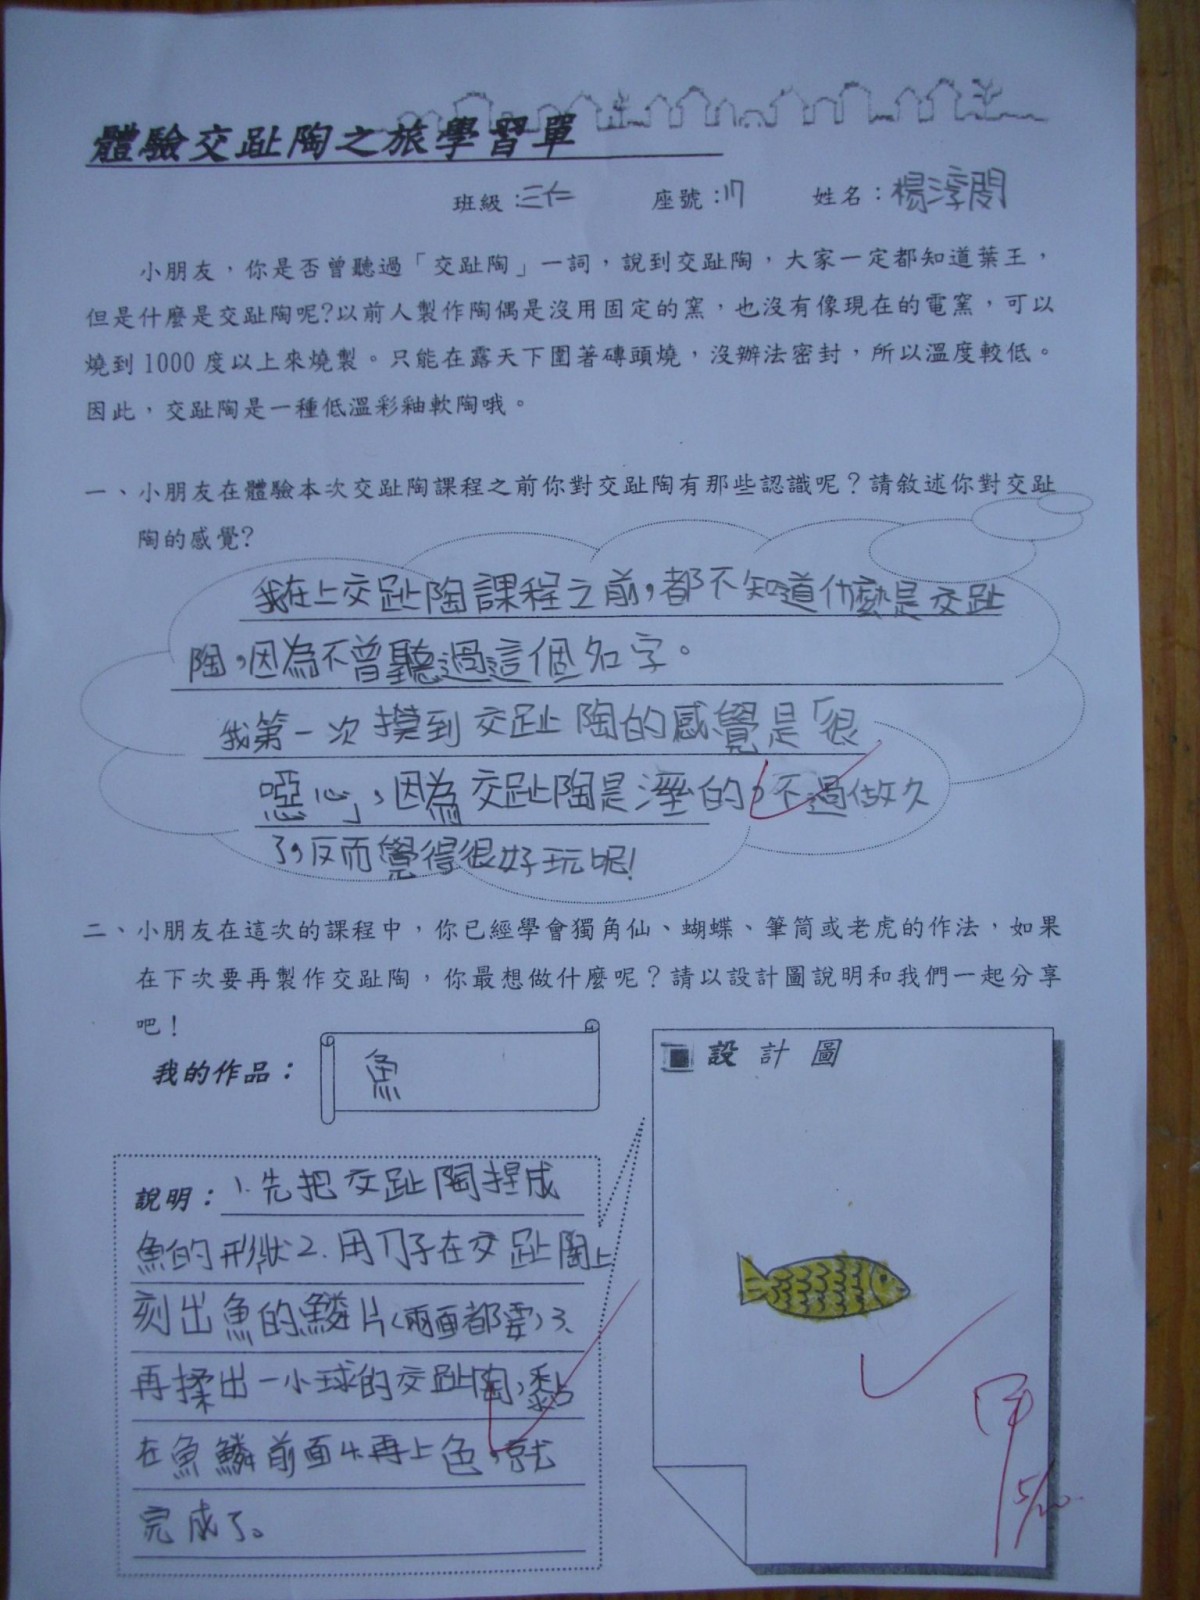 體驗交趾陶之旅學習單
班級：三仁 座號：17 姓名：楊淳閔
小朋友，你是否曾聽過「交趾陶」一詞，說到交趾陶，大家一定都知道葉王，
但是什麼是交趾陶呢?以前人製作陶偶是沒用固定的窯，也沒有像現在的電窯，可以
燒到 1000 度以上來燒製。只能在露天下圍著磚頭燒，沒辦法密封，所以溫度較低。
因此，交趾陶是一種低溫彩釉軟陶哦。
一、小朋友在體驗本次交趾陶課程之前你對交趾陶有那些認識呢？請敘述你對交趾
陶的感覺?
我在上交趾陶課程之前，都不知道什麼是交趾
陶，因為不曾聽過這個名字。
我第一次摸到交趾陶的感覺是「很
噁心」，因為交趾陶是溼的，不過做久
了，反而覺得很好玩呢！
二、小朋友在這次的課程中，你已經學會獨角仙、蝴蝶、筆筒或老虎的作法，如果
在下次要再製作交趾陶，你最想做什麼呢？請以設計圖說明和我們一起分享
吧！
我的作品：魚
說明：1.先把交趾陶捏成
魚的形狀2.用刀子在交趾陶上
刻出魚的鱗片(兩面都要)3.
再揉出一小球的交趾陶，黏
在魚鱗前面4.再上色，就
完成了。
設計圖
甲
5/20